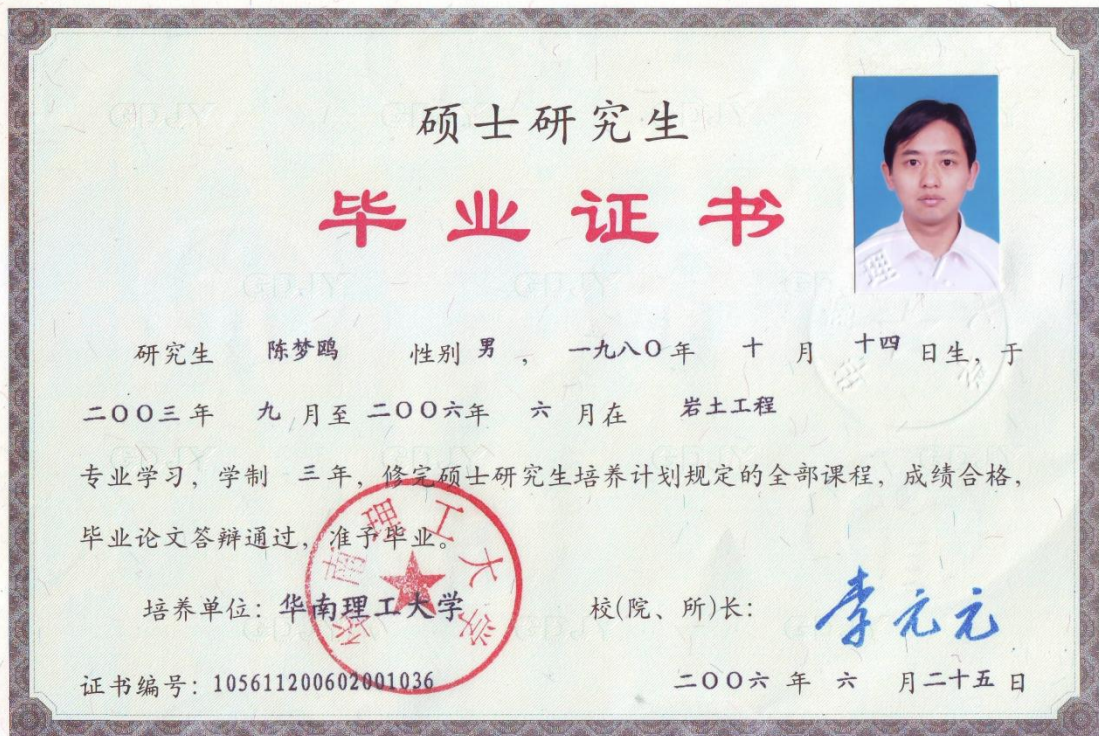 硕士研究生
毕业证书
研究生 陈梦鸥 性别 男 ， 一九八〇年 十 月 十四 日生，于
二〇〇三年 九 月至 二〇〇六年 六 月在 岩土工程
专业学习，学制 三年，修完硕士研究生培养计划规定的全部课程，成绩合格，
毕业论文答辩通过，准予毕业。
华南理工大学
培养单位：华南理工大学 校(院、所)长：李元元
证书编号：105611200602001036 二〇〇六 年 六 月二十五 日